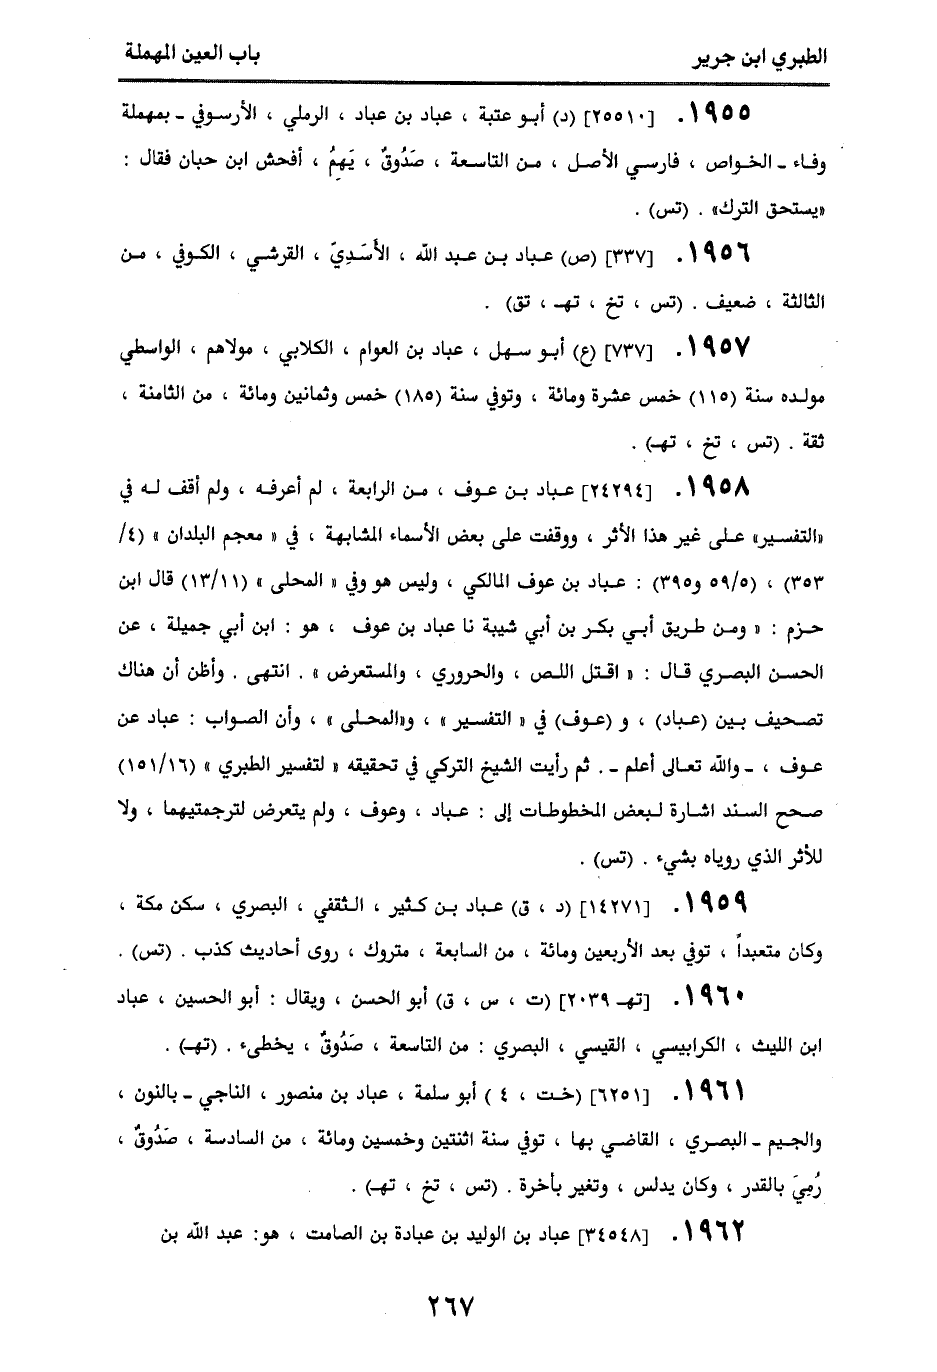 الطبري ابن جرير
باب العين المهملة
١٩٥٥. [٢٥٥١٠] (د) أبو عتبة ، عباد بن عباد ، الرملي ، الأرسوفي ـ بمهملة
وفاء ـ الخواص ، فارسي الأصل ، من التاسعة ، صَدُوقٌ ، يَهِمُ ، أفحش ابن حبان فقال :
«يستحق الترك» . (تس) .
١٩٥٦. [٣٣٧] (ص) عباد بن عبد الله ، الأَسَدِيّ ، القرشي ، الكوفي ، من
الثالثة ، ضعيف . (تس ، تخ ، تهـ ، تق) .
١٩٥٧. [٧٣٧] (ع) أبو سهل ، عباد بن العوام ، الكلابي ، مولاهم ، الواسطي
مولده سنة (١١٥) خمس عشرة ومائة ، وتوفي سنة (١٨٥) خمس وثمانين ومائة ، من الثامنة ،
ثقة . (تس ، تخ ، تهـ) .
١٩٥٨. [٢٤٢٩٤] عباد بن عوف ، من الرابعة ، لم أعرفه ، ولم أقف له في
«التفسير» على غير هذا الأثر ، ووقفت على بعض الأسماء المشابهة ، في « معجم البلدان » (٤/
٣٥٣) ، (٥٩/٥ و٣٩٥) : عباد بن عوف المالكي ، وليس هو وفي « المحلى » (١٣/١١) قال ابن
حزم : « ومن طريق أبي بكر بن أبي شيبة نا عباد بن عوف ، هو : ابن أبي جميلة ، عن
الحسن البصري قال : « اقتل اللص ، والحروري ، والمستعرض » . انتهى . وأظن أن هناك
تصحيف بين (عباد) ، و (عوف) في « التفسير » ، و«المحلى » ، وأن الصواب : عباد عن
عوف ، ـ والله تعالى أعلم ـ . ثم رأيت الشيخ التركي في تحقيقه « لتفسير الطبري » (١٥١/١٦)
صحح السند اشارة لبعض المخطوطات إلى : عباد ، وعوف ، ولم يتعرض لترجمتيهما ، ولا
للأثر الذي روياه بشيء . (تس) .
١٩٥٩. [١٤٢٧١] (د ، ق) عباد بن كثير ، الثقفي ، البصري ، سكن مكة ،
وكان متعبداً ، توفي بعد الأربعين ومائة ، من السابعة ، متروك ، روى أحاديث كذب . (تس) .
١٩٦٠. [تهـ ٢٠٣٩] (ت ، س ، ق) أبو الحسن ، ويقال : أبو الحسين ، عباد
ابن الليث ، الكرابيسي ، القيسي ، البصري : من التاسعة ، صَدُوقٌ ، يخطىء . (تهـ) .
١٩٦١. [٦٢٥١] (خت ، ٤ ) أبو سلمة ، عباد بن منصور ، الناجي ـ بالنون ،
والجيم ـ البصري ، القاضي بها ، توفي سنة اثنتين وخمسين ومائة ، من السادسة ، صَدُوقٌ ،
رُمِيَ بالقدر ، وكان يدلس ، وتغير بأخرة . (تس ، تخ ، تهـ) .
١٩٦٢. [٣٤٥٤٨] عباد بن الوليد بن عبادة بن الصامت ، هو: عبد الله بن
٢٦٧